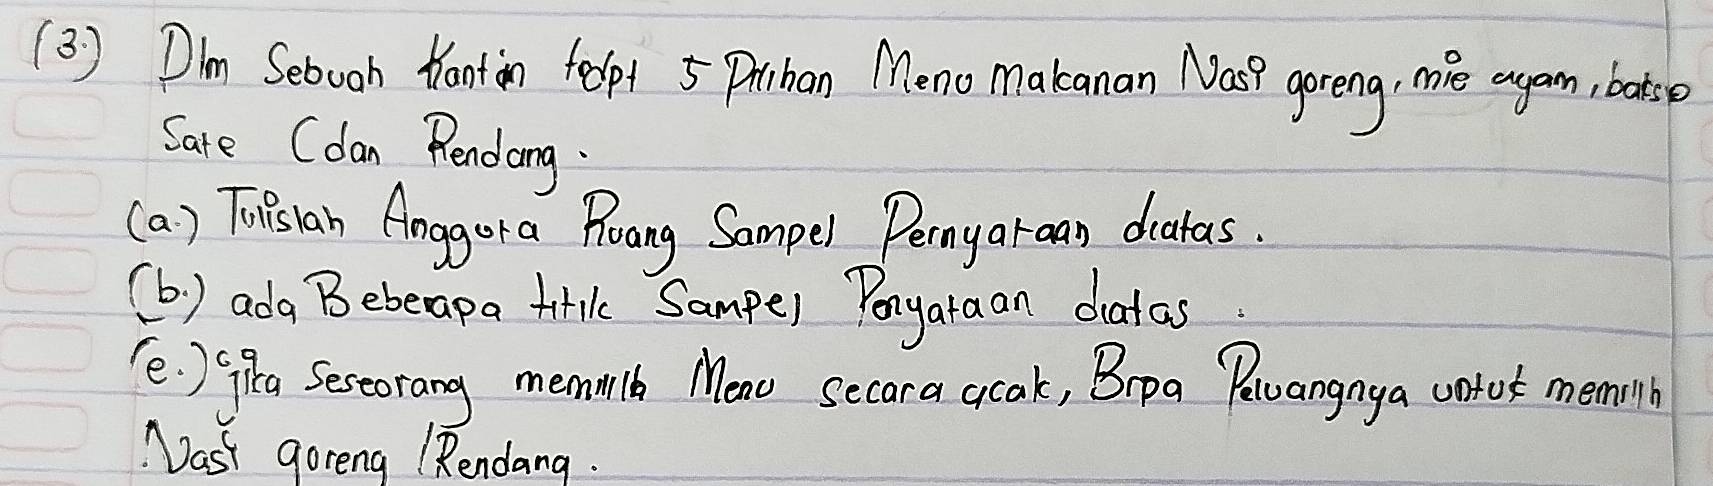 (3.) Dlm Sebuah Kantin tedpt 5 Pilihan Menu makanan Nasi goreng, mie ayam, bakso
Sate (dan Rendang.
(a.) Tulislah Anggota Ruang Sampel Pernyataan diatas.
(b.) ada Beberapa titik Sampel Penyataan diatas.
(c.) jika Seseorang memilih Menu secara acak, Brpa Peluangnya untuk memilih
Nasi goreng / Rendang.